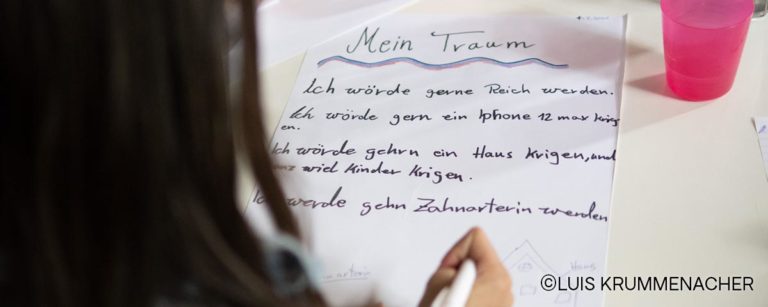 Mein Traum
Ich wörde gerne Reich werden.
Ich wörde gern ein Iphone 12 max krieg
en.
Ich wörde gehrn ein Haus Krigen, und
wiel Kinder Krigen.
werde gehn Zahnarterin werden
Haus
©LUIS KRUMMENACHER